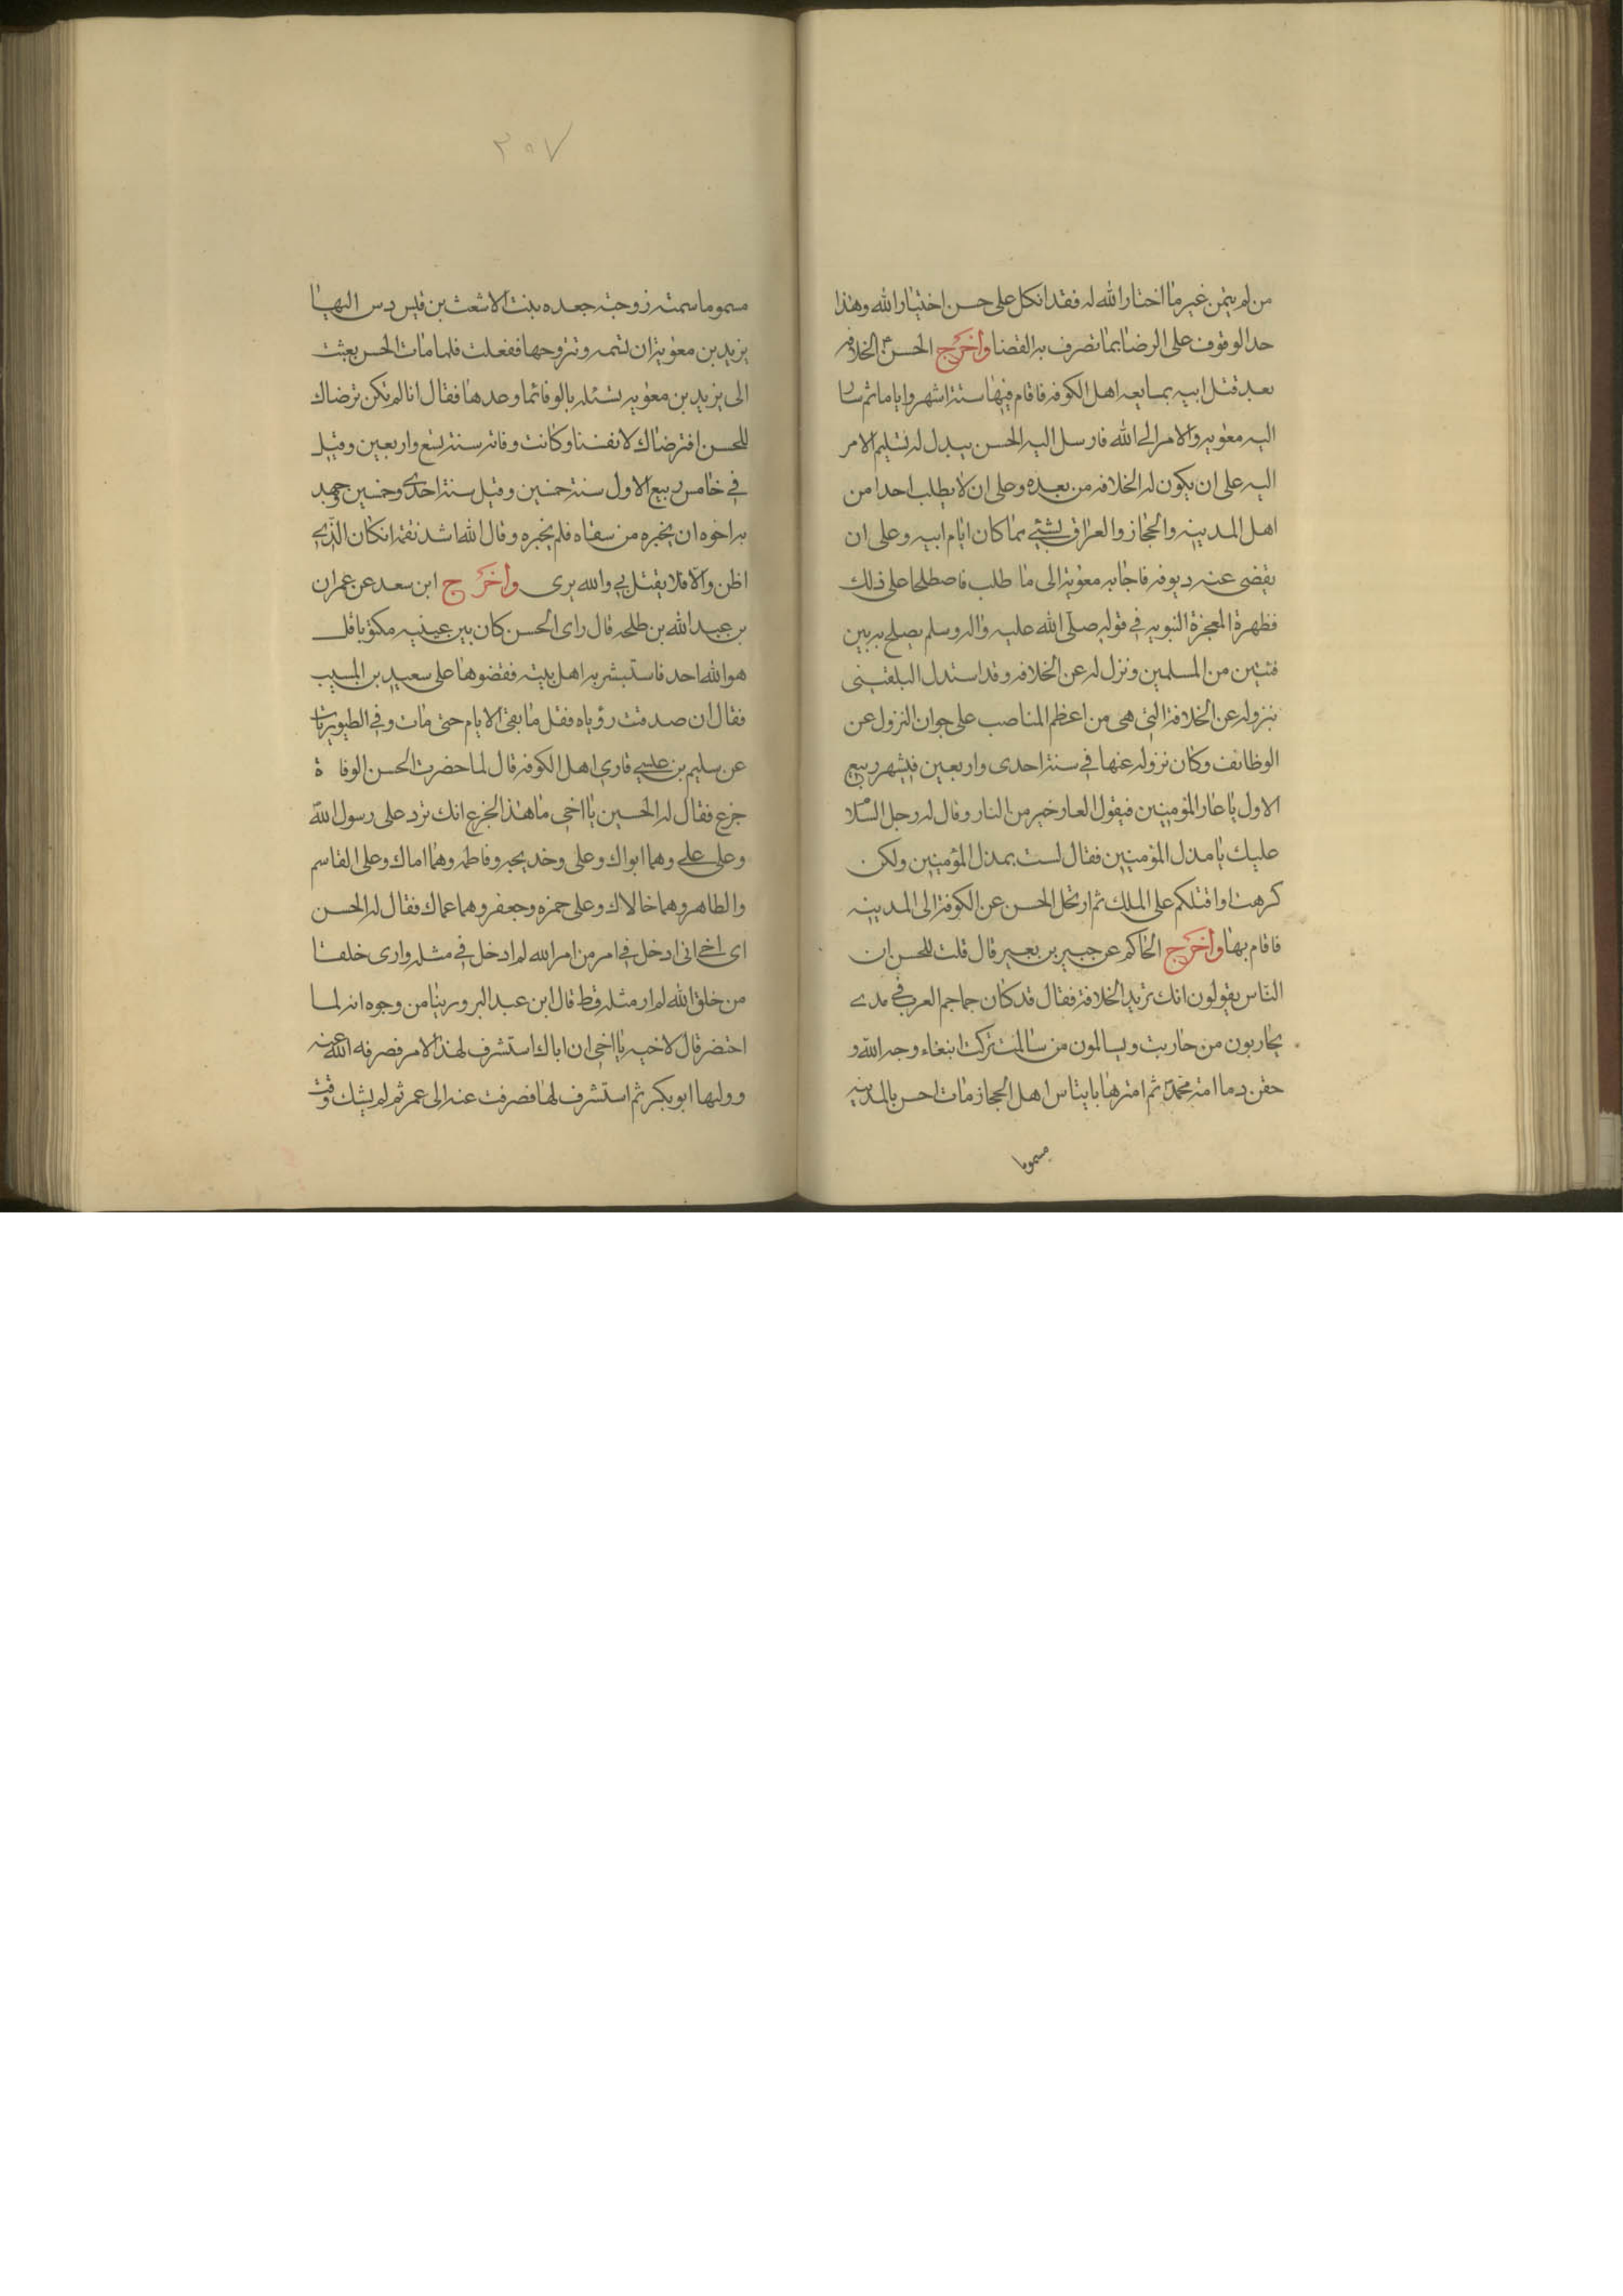 من لم يتمن غير ما اختار الله له فقد اتكل على حسن اختيار الله وهذا
حد الوقوف على الرضا بما تصرف به القضا واخرج الحسن ع الخلافه
بعد قتل ابيه بمبايعه اهل الكوفه فاقام فيها ستة اشهر واياما ثم سار
اليه معويه والامر الى الله فارسل اليه الحسن يبدل له تسليم الامر
اليه على ان يكون له الخلافه من بعده وعلى ان لا يطلب احدا من
اهل المدينه والحجاز والعراق بشئ مما كان ايام ابيه وعلى ان
يقضى عنه ديونه فاجابه معوية الى ما طلب فاصطلحا على ذلك
فظهرة المعجزة النبويه في قوله صلى الله عليه واله وسلم يصلح به بين
فئتين من المسلمين ونزل له عن الخلافه وقد استدل البلقينى
بنزوله عن الخلافة التى هى من اعظم المناصب على جوان النزول عن
الوظائف وكان نزوله عنها في سنة احدى واربعين في شهر ربيع
الاول يا عار المؤمنين فيقول العار خير من النار وقال له رجل السلام
عليك يا مذل المؤمنين فقال لست بمذل المؤمنين ولكن
كرهت اواقتلكم على الملك ثم ارتحل الحسن عن الكوفة الى المدينه
فاقام بها واخرج الحاكم عن جبير بن بعير قال قلت للحسن ان
الناس يقولون انك تريد الخلافة فقال قد كان جماجم العرب في يدى
يحاربون من حاربت ويسالمون من سالمت تركت ابتغاء وجه الله و
حقن دما امة محمد ثم امترها باتياس اهل الحجاز مات احسن بالمدينه
مسموما
٢٥٧
مسموما سمته زوجته جعده بنت الاشعث بن قيس دس اليها
يزيد بن معوية ان تسمه وتتزوجها ففعلت فلما مات الحسن بعثت
الى يزيد بن معويه تسئله بالوفاء ما وعدها فقال انا لم نكن نرضاك
للحسن افترضاك لانفسنا وكانت وفاته سنة تسع واربعين وقيل
في خامس ربيع الاول سنة خمسين وقيل سنة احدى وخمسين وجهد
به اخوه ان يخبره من سقاه فلم يخبره وقال الله اشد نقمة ان كان الذى
اظن والا فلا يقتل بى والله برى واخرج ابن سعد عن عمران
بن عبد الله بن طلحه قال راى الحسن كان بين عينيه مكتوبا قل
هو الله احد فاستبشر به اهل بيته فقضوها على سعيد بن المسيب
فقال ان صدقت رؤياه فقل ما بقى الايام حتى مات وفي الطيوريات
عن سليم بن عيسى قارى اهل الكوفه قال لما حضرت الحسن الوفاة
جزع فقال له الحسين يا اخى ما هذا الجزع انك ترد على رسول الله
وعلى على وهما ابواك وعلى وخديجه وفاطمه وهما اماك وعلى القاسم
والطاهر وهما خالاك وعلى حمزه وجعفر وهما عماك فقال له الحسن
اى اخى انى ادخل فى امر من امر الله لم ادخل في مثله وارى خلقا
من خلق الله لم ار مثله قط قال ابن عبد البر وروينا من وجوه انه لما
احتضر قال لاخيه يا اخى ان اباك استشرف لهذا الامر فصرفه الله عنه
ووليها ابو بكر ثم استشرف لها فصرفت عنه الى عمر ثم لم يشك وقت